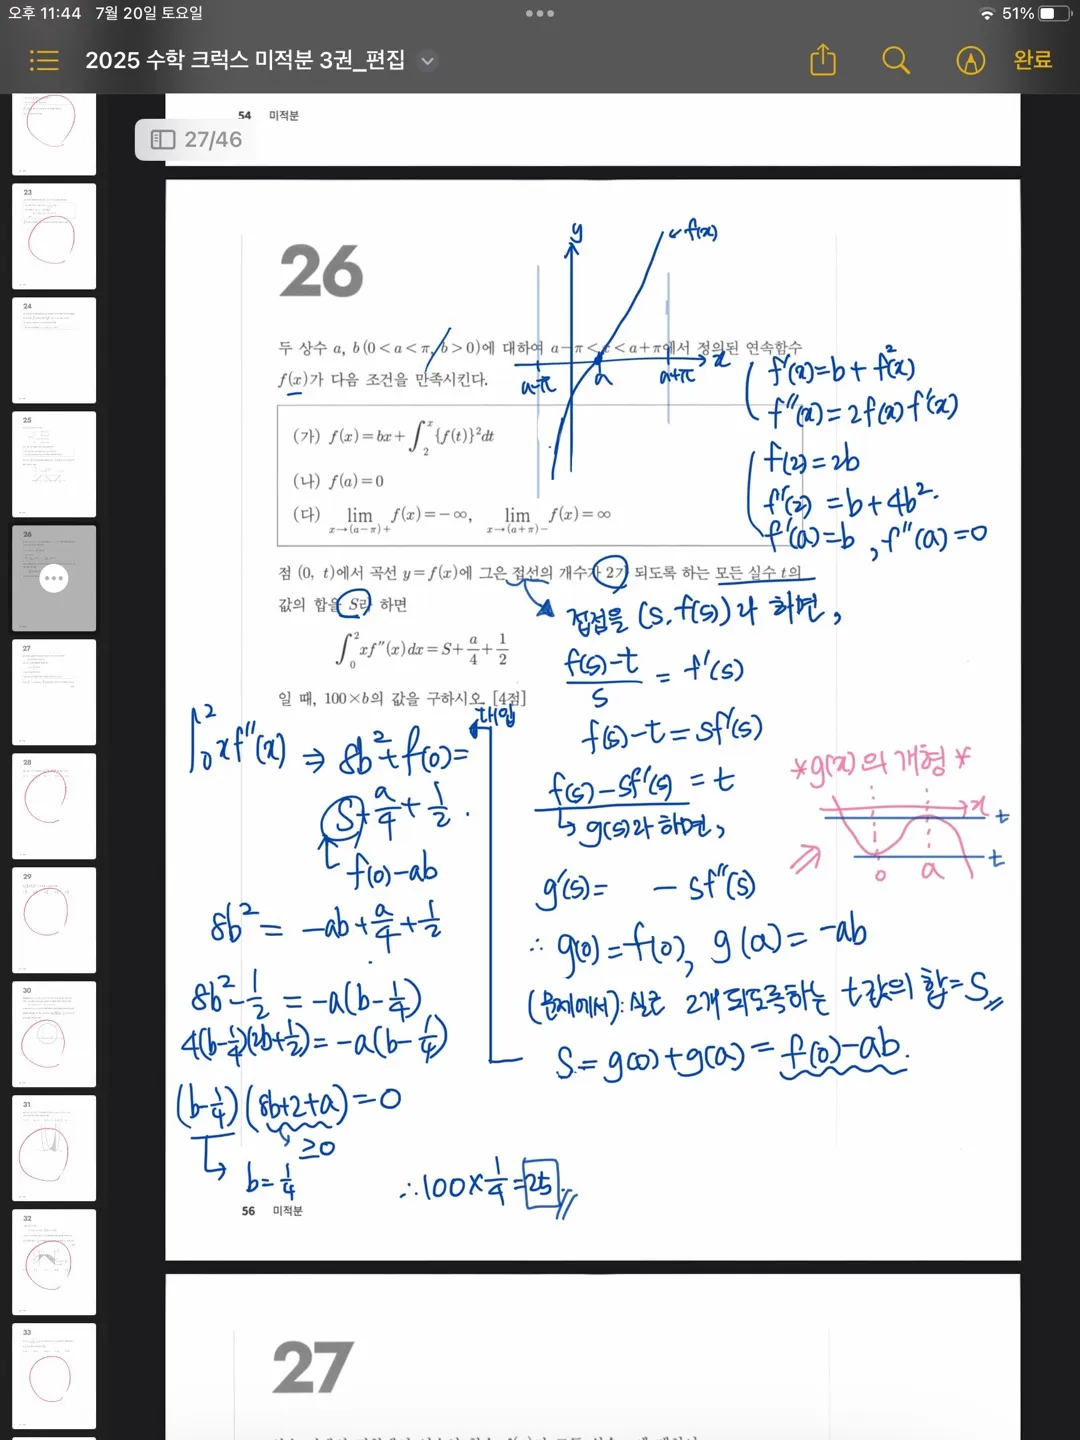 오후 11:44 7월 20일 토요일
51%
2025 수학 크럭스 미적분 3권_편집
완료
54 미적분
27/46
26
두 상수 a, b(0<a<π, b>0)에 대하여 a-π<x<a+π에서 정의된 연속함수
f(x)가 다음 조건을 만족시킨다.
(가) f(x)=bx+∫₂ˣ{f(t)}²dt
(나) f(a)=0
(다) lim x→(a-π)+ f(x)=-∞, lim x→(a+π)- f(x)=∞
점 (0, t)에서 곡선 y=f(x)에 그은 접선의 개수가 2가 되도록 하는 모든 실수 t의
값의 합을 S라 하면
∫₀² xf″(x)dx=S+a/4+1/2
일 때, 100×b의 값을 구하시오. [4점]
y
←f(x)
a-π a a+π x
f'(x)=b+f²(x)
f″(x)=2f(x)f'(x)
f(2)=2b
f'(2)=b+4b².
f'(a)=b, f″(a)=0
접점을 (s, f(s))라 하면,
(f(s)-t)/s = f'(s)
f(s)-t=sf'(s)
f(s)-sf'(s)=t
↳g(s)라 하면,
g'(s)= -sf″(s)
∴ g(0)=f(0), g(a)=-ab
(문제에서): 실근 2개 되도록하는 t값의 합=S
S=g(0)+g(a)=f(0)-ab.
*g(x)의 개형*
x
t
t
0 a
대입
∫₀² xf″(x) ⇒ 8b²+f(0)=
S+a/4+1/2.
f(0)-ab
8b²=-ab+a/4+1/2
8b²-1/2=-a(b-1/4)
4(b-1/4)(2b+1/2)=-a(b-1/4)
(b-1/4)(8b+2+a)=0
≥0
b=1/4
∴100×1/4=25
56 미적분
27
23
24
25
26
27
28
29
30
31
32
33